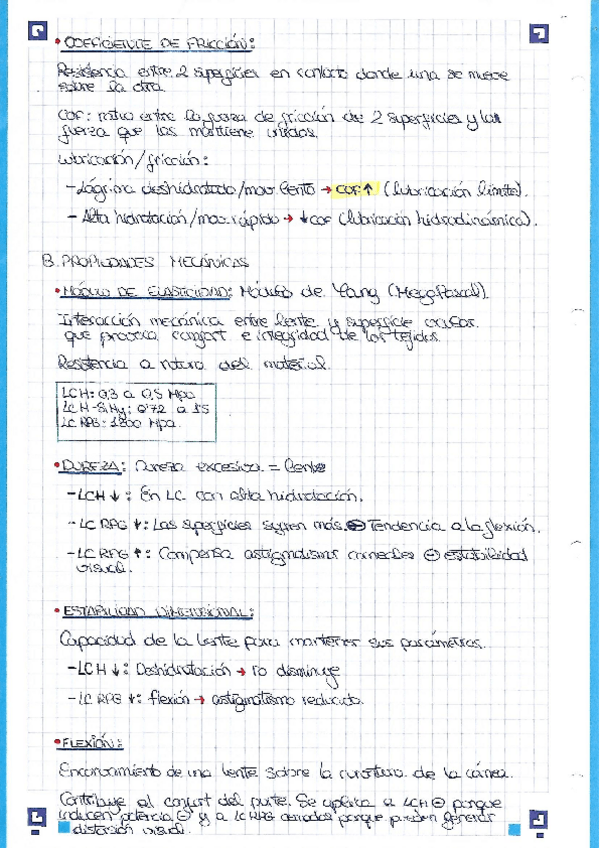 • COEFICIENTE DE FRICCIÓN:
Resistencia entre 2 superficies en contacto donde una se mueve
sobre la otra
COF: ratio entre la fuerza de fricción de 2 superficies y la
fuerza que las mantiene unidas.
Lubricación/fricción:
- Lágrima deshidratada/mov. lento → COF↑ (lubricación límite).
- Alta hidratación/mov. rápido → ↓COF (lubricación hidrodinámica).
B. PROPIEDADES MECÁNICAS
• MÓDULO DE ELASTICIDAD: Módulo de Yang (MegaPascal).
Interacción mecánica entre lente y superficie ocular
que provoca confort e integridad de los tejidos.
Resistencia a rotura del material.
LCH: 0,3 a 0,5 Mpa
LC H-SiHy: 0'72 a 1'5
LC RPG: 1200 Mpa.
• DUREZA: Dureza excesiva = lente
- LCH ↓: En LC con alta hidratación.
- LC RPG ↓: Las superficies sufren más. Tendencia a la flexión.
- LC RPG ↑: Compensa astigmatismos corneales ⊖ estabilidad
visual.
• ESTABILIDAD DIMENSIONAL:
Capacidad de la lente para mantener sus parámetros.
- LCH ↓: Deshidratación → disminuye
- LC RPG ↓: flexión → astigmatismo reducido.
• FLEXIÓN:
Encorvamiento de una lente sobre la curvatura de la córnea.
Contribuye al confort del pcte. Se aplica a LCH ⊖ porque
inducen potencia ⊖ y a LC RPG porque pueden generar
distorsión visual.